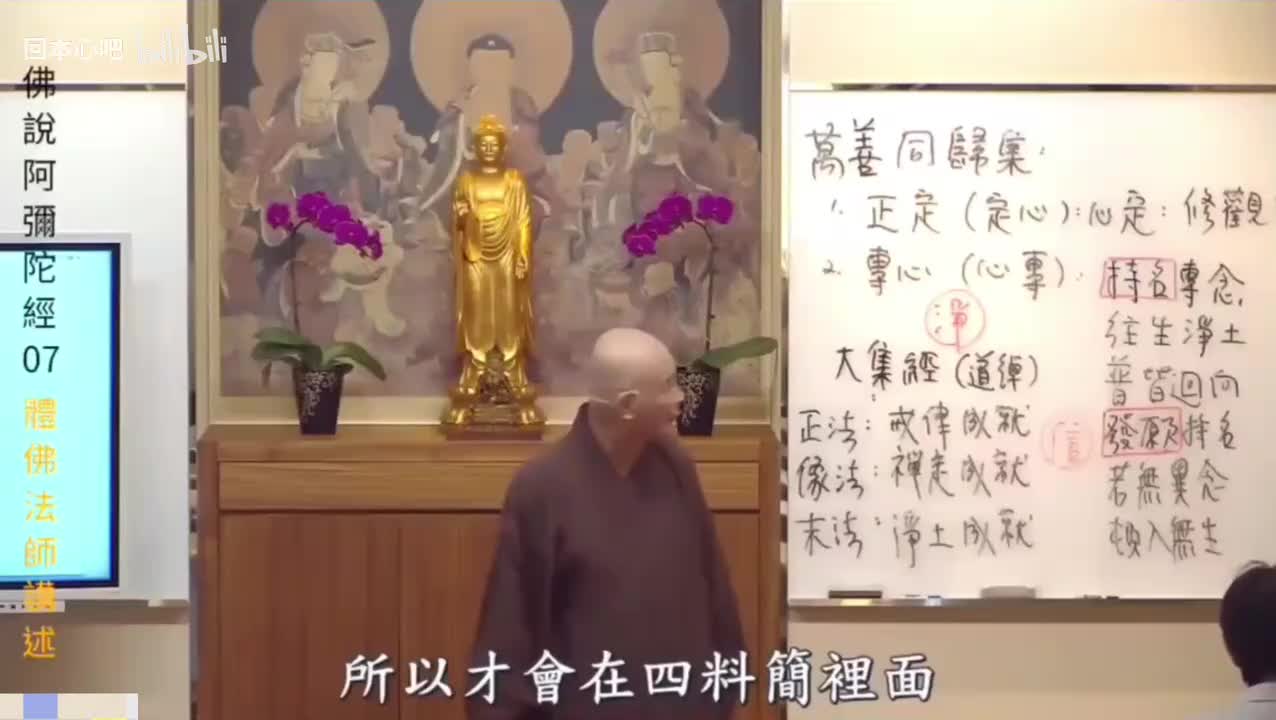 回本心吧 bilibili
佛說阿彌陀經07 體佛法師講述
萬善同歸集:
1. 正定(定心):心定:修觀
2. 專心(心專):持名專念,
往生淨土
普皆迴向
發願持名
若無異念
頓入無生
禪
大集經(道綽)
正法:戒律成就
像法:禪定成就
末法:淨土成就
信
所以才會在四料簡裡面